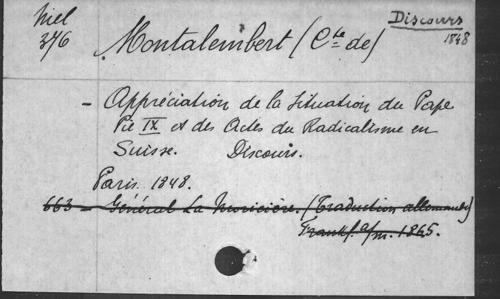 Niel
376
Montalembert (Cte de)
Discours
1848
- Appréciation de la Situation du Pape
Pie IX et des Actes du Radicalisme en
Suisse. Discours.
Paris. 1848.
663 - Général La Moricière. (Traduction allemande)
Frankf. a/m. 1865.